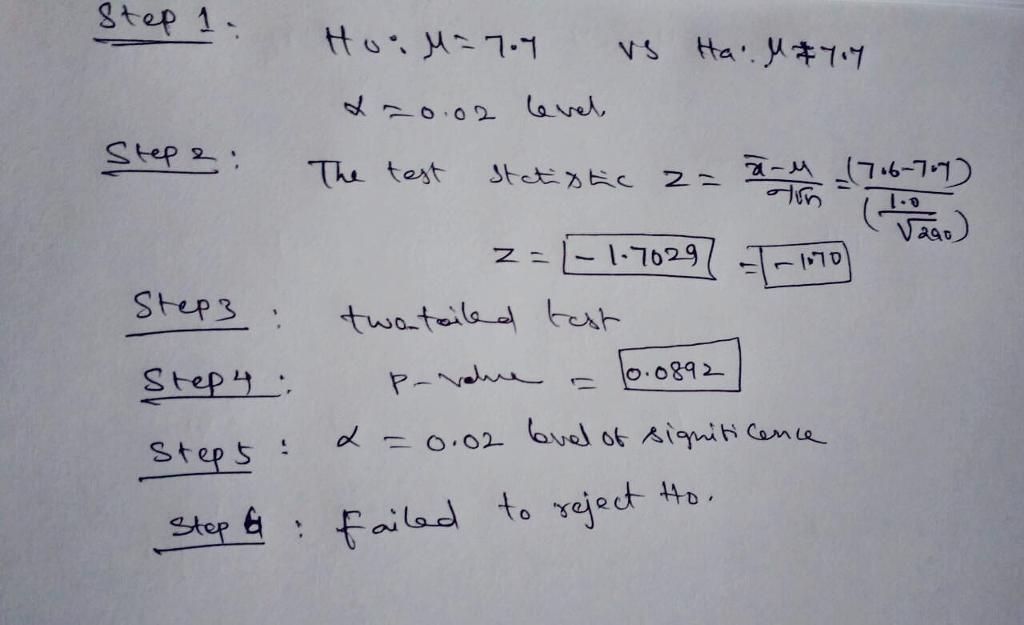 Step 1:
Ho: μ = 7.7 vs Ha: μ ≠ 7.7
α = 0.02 level
Step 2: The test statistic z = (x̄-μ)/(σ/√n) = (7.6-7.7)/(1.0/√290)
z = -1.7029 = -1.70
Step 3: two tailed test
Step 4: P-value = 0.0892
Step 5: α = 0.02 level of significance
Step 6: Failed to reject Ho.